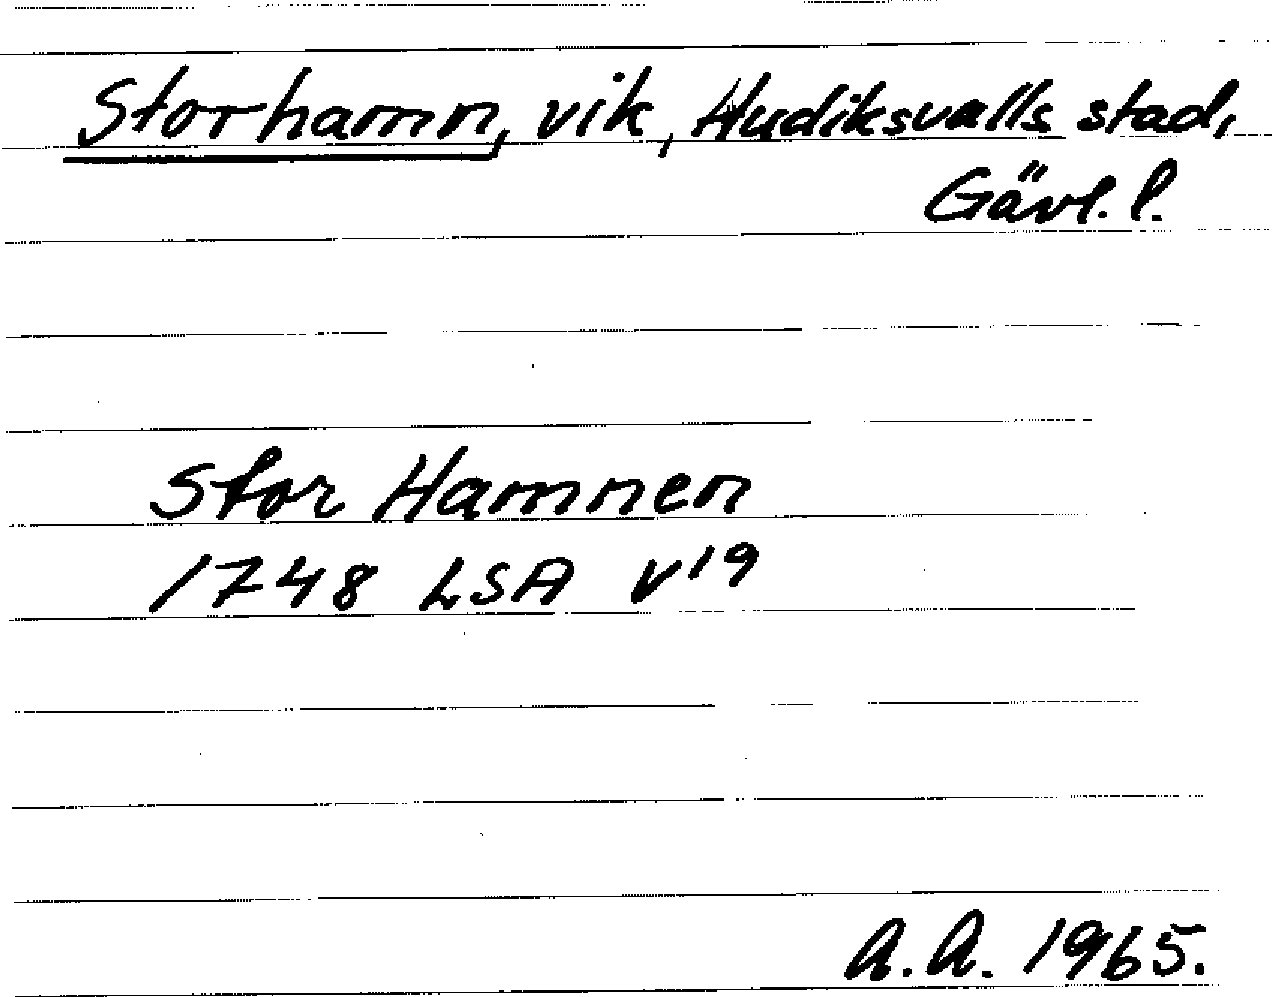 Storhamn, vik, Hudiksvalls stad,
Gävl. l.
Stor Hamnen
1748 LSA V19
A.A. 1965.